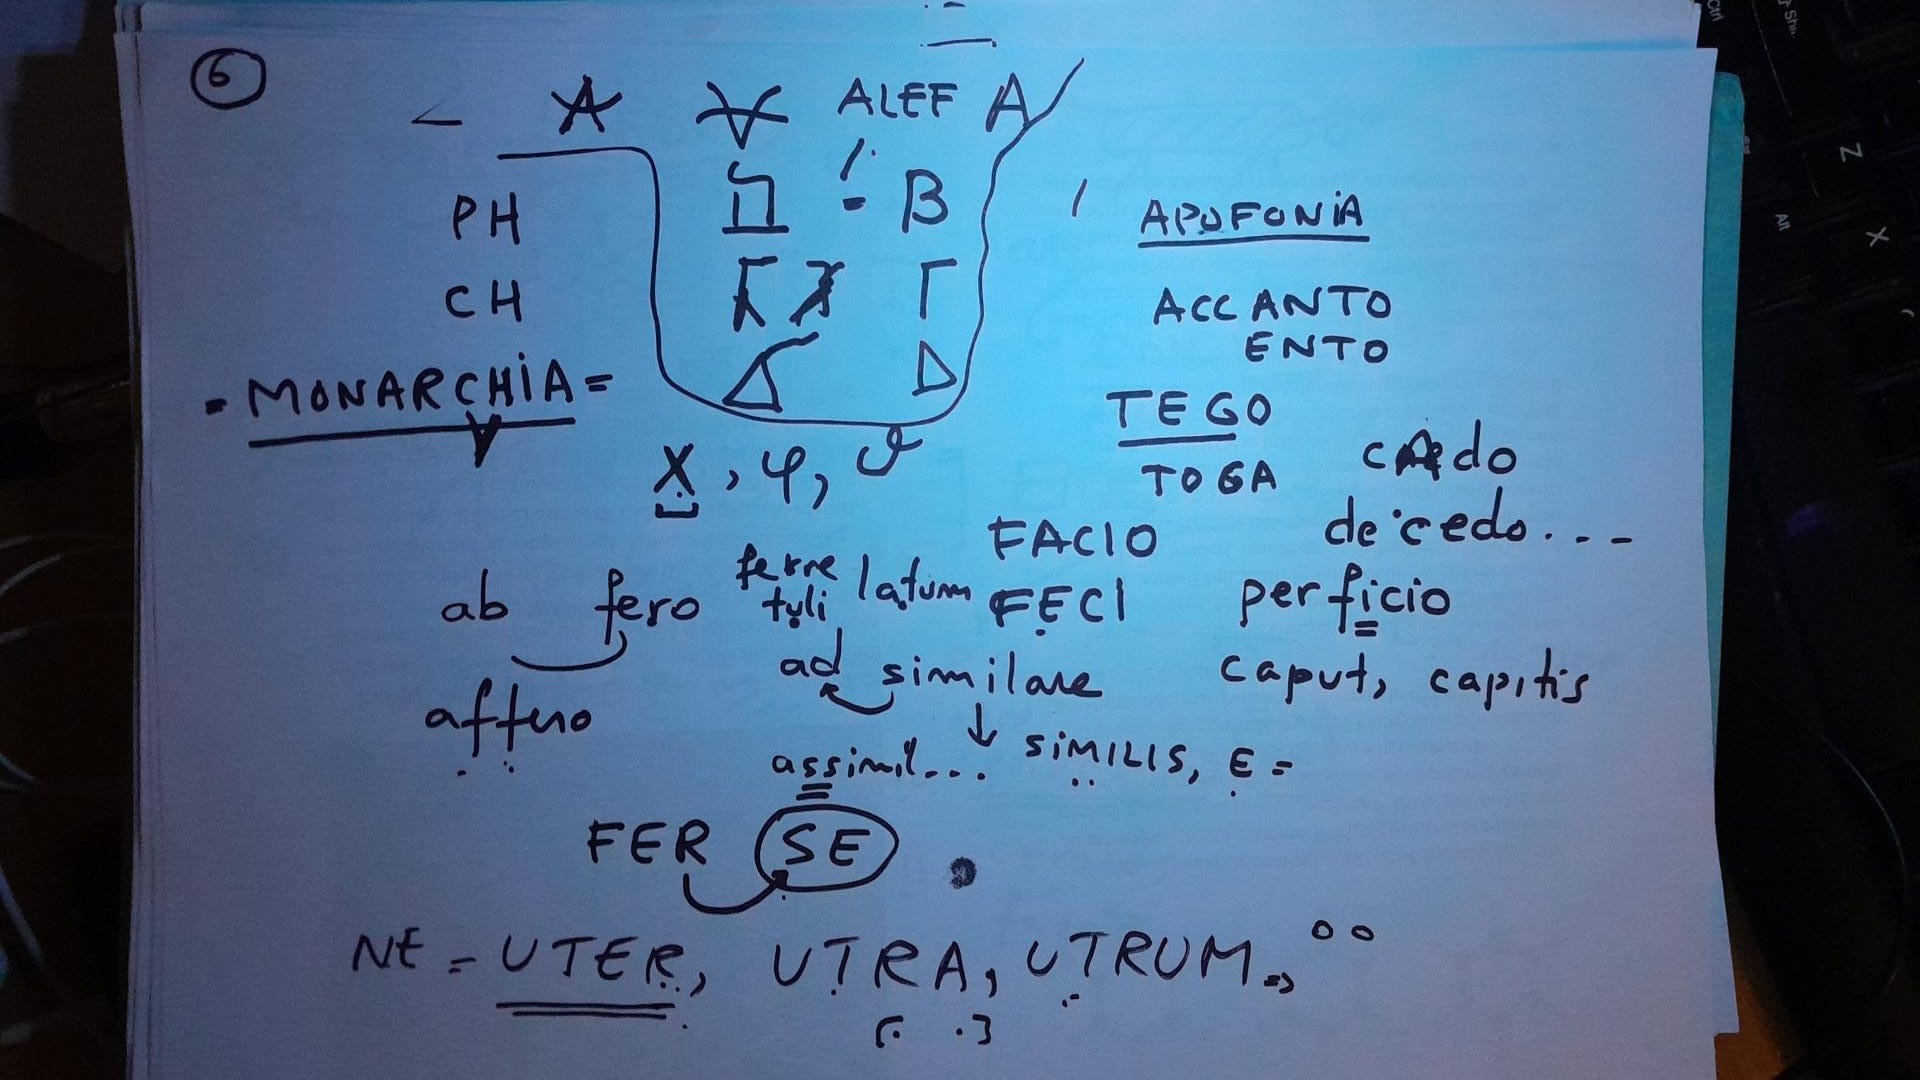 6
< A ALEF A
PH B
CH Γ
MONARCHIA = Δ
X, φ, ϑ
APOFONIA
ACCANTO
ENTO
TEGO
TOGA
cAdo
decedo...
FACIO
FECI
perficio
caput, capitis
ab fero ferre tuli latum
affero
ad similare
assimil... SIMILIS, E =
FER SE
NE = UTER, UTRA, UTRUM
Z
X
Alt
Ctrl